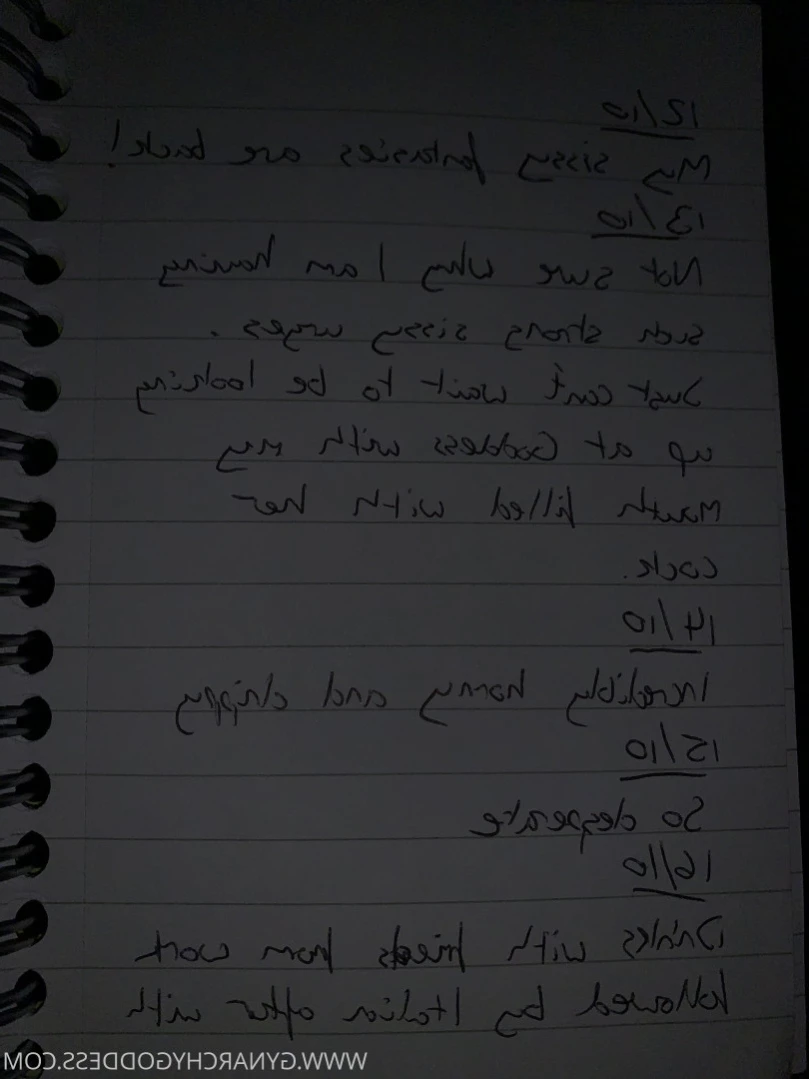 12/10
My sissy fantasies are back!
13/10
Not sure why I am having
such strong sissy urges.
Just can't wait to be looking
up at Goddess with my
mouth filled with her
cock.
14/10
Incredibly horny and drippy
15/10
So desperate
16/10
Drinks with frieds from work
followed by Italian after with
WWW.GYNARCHYGODDESS.COM